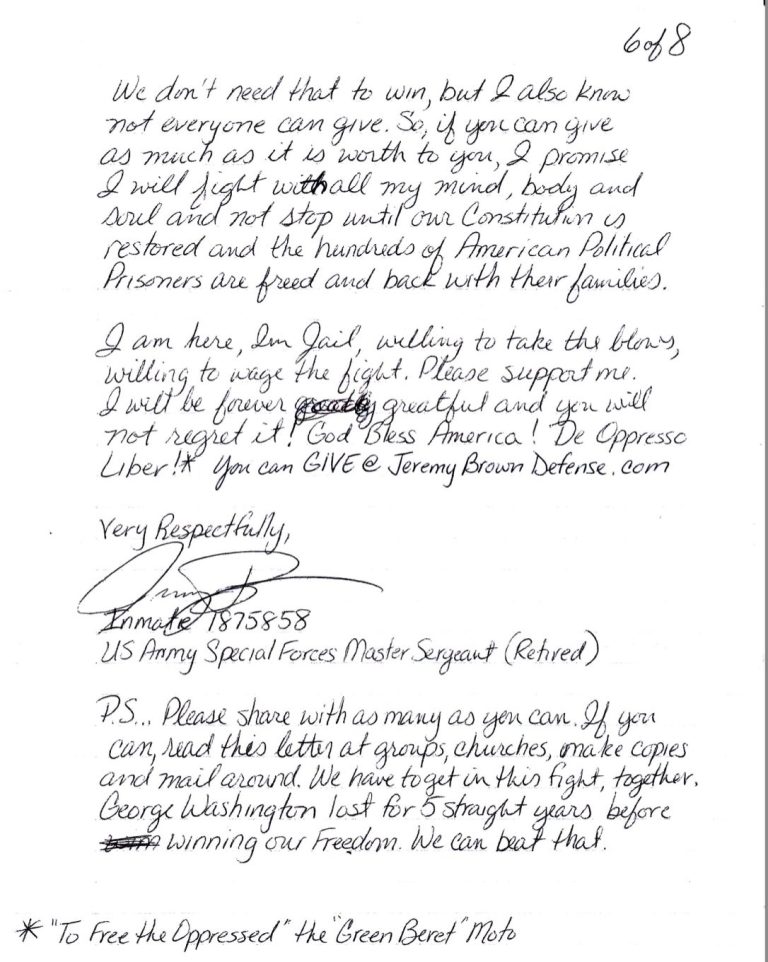 6 of 8
We don't need that to win, but I also know
not everyone can give. So, if you can give
as much as it is worth to you, I promise
I will fight with all my mind, body and
soul and not stop until our Constitution is
restored and the hundreds of American Political
Prisoners are freed and back with their families.
I am here, In Jail, willing to take the blows,
willing to wage the fight. Please support me.
I will be forever greatful and you will
not regret it! God Bless America! De Oppresso
Liber!* You can GIVE @ Jeremy Brown Defense.com
Very Respectfully,
Inmate 1875858
US Army Special Forces Master Sergeant (Retired)
P.S... Please share with as many as you can. If you
can, read this letter at groups, churches, make copies
and mail around. We have to get in this fight, together.
George Washington lost for 5 straight years before
winning our Freedom. We can beat that.
* "To Free the Oppressed" the "Green Beret" Moto